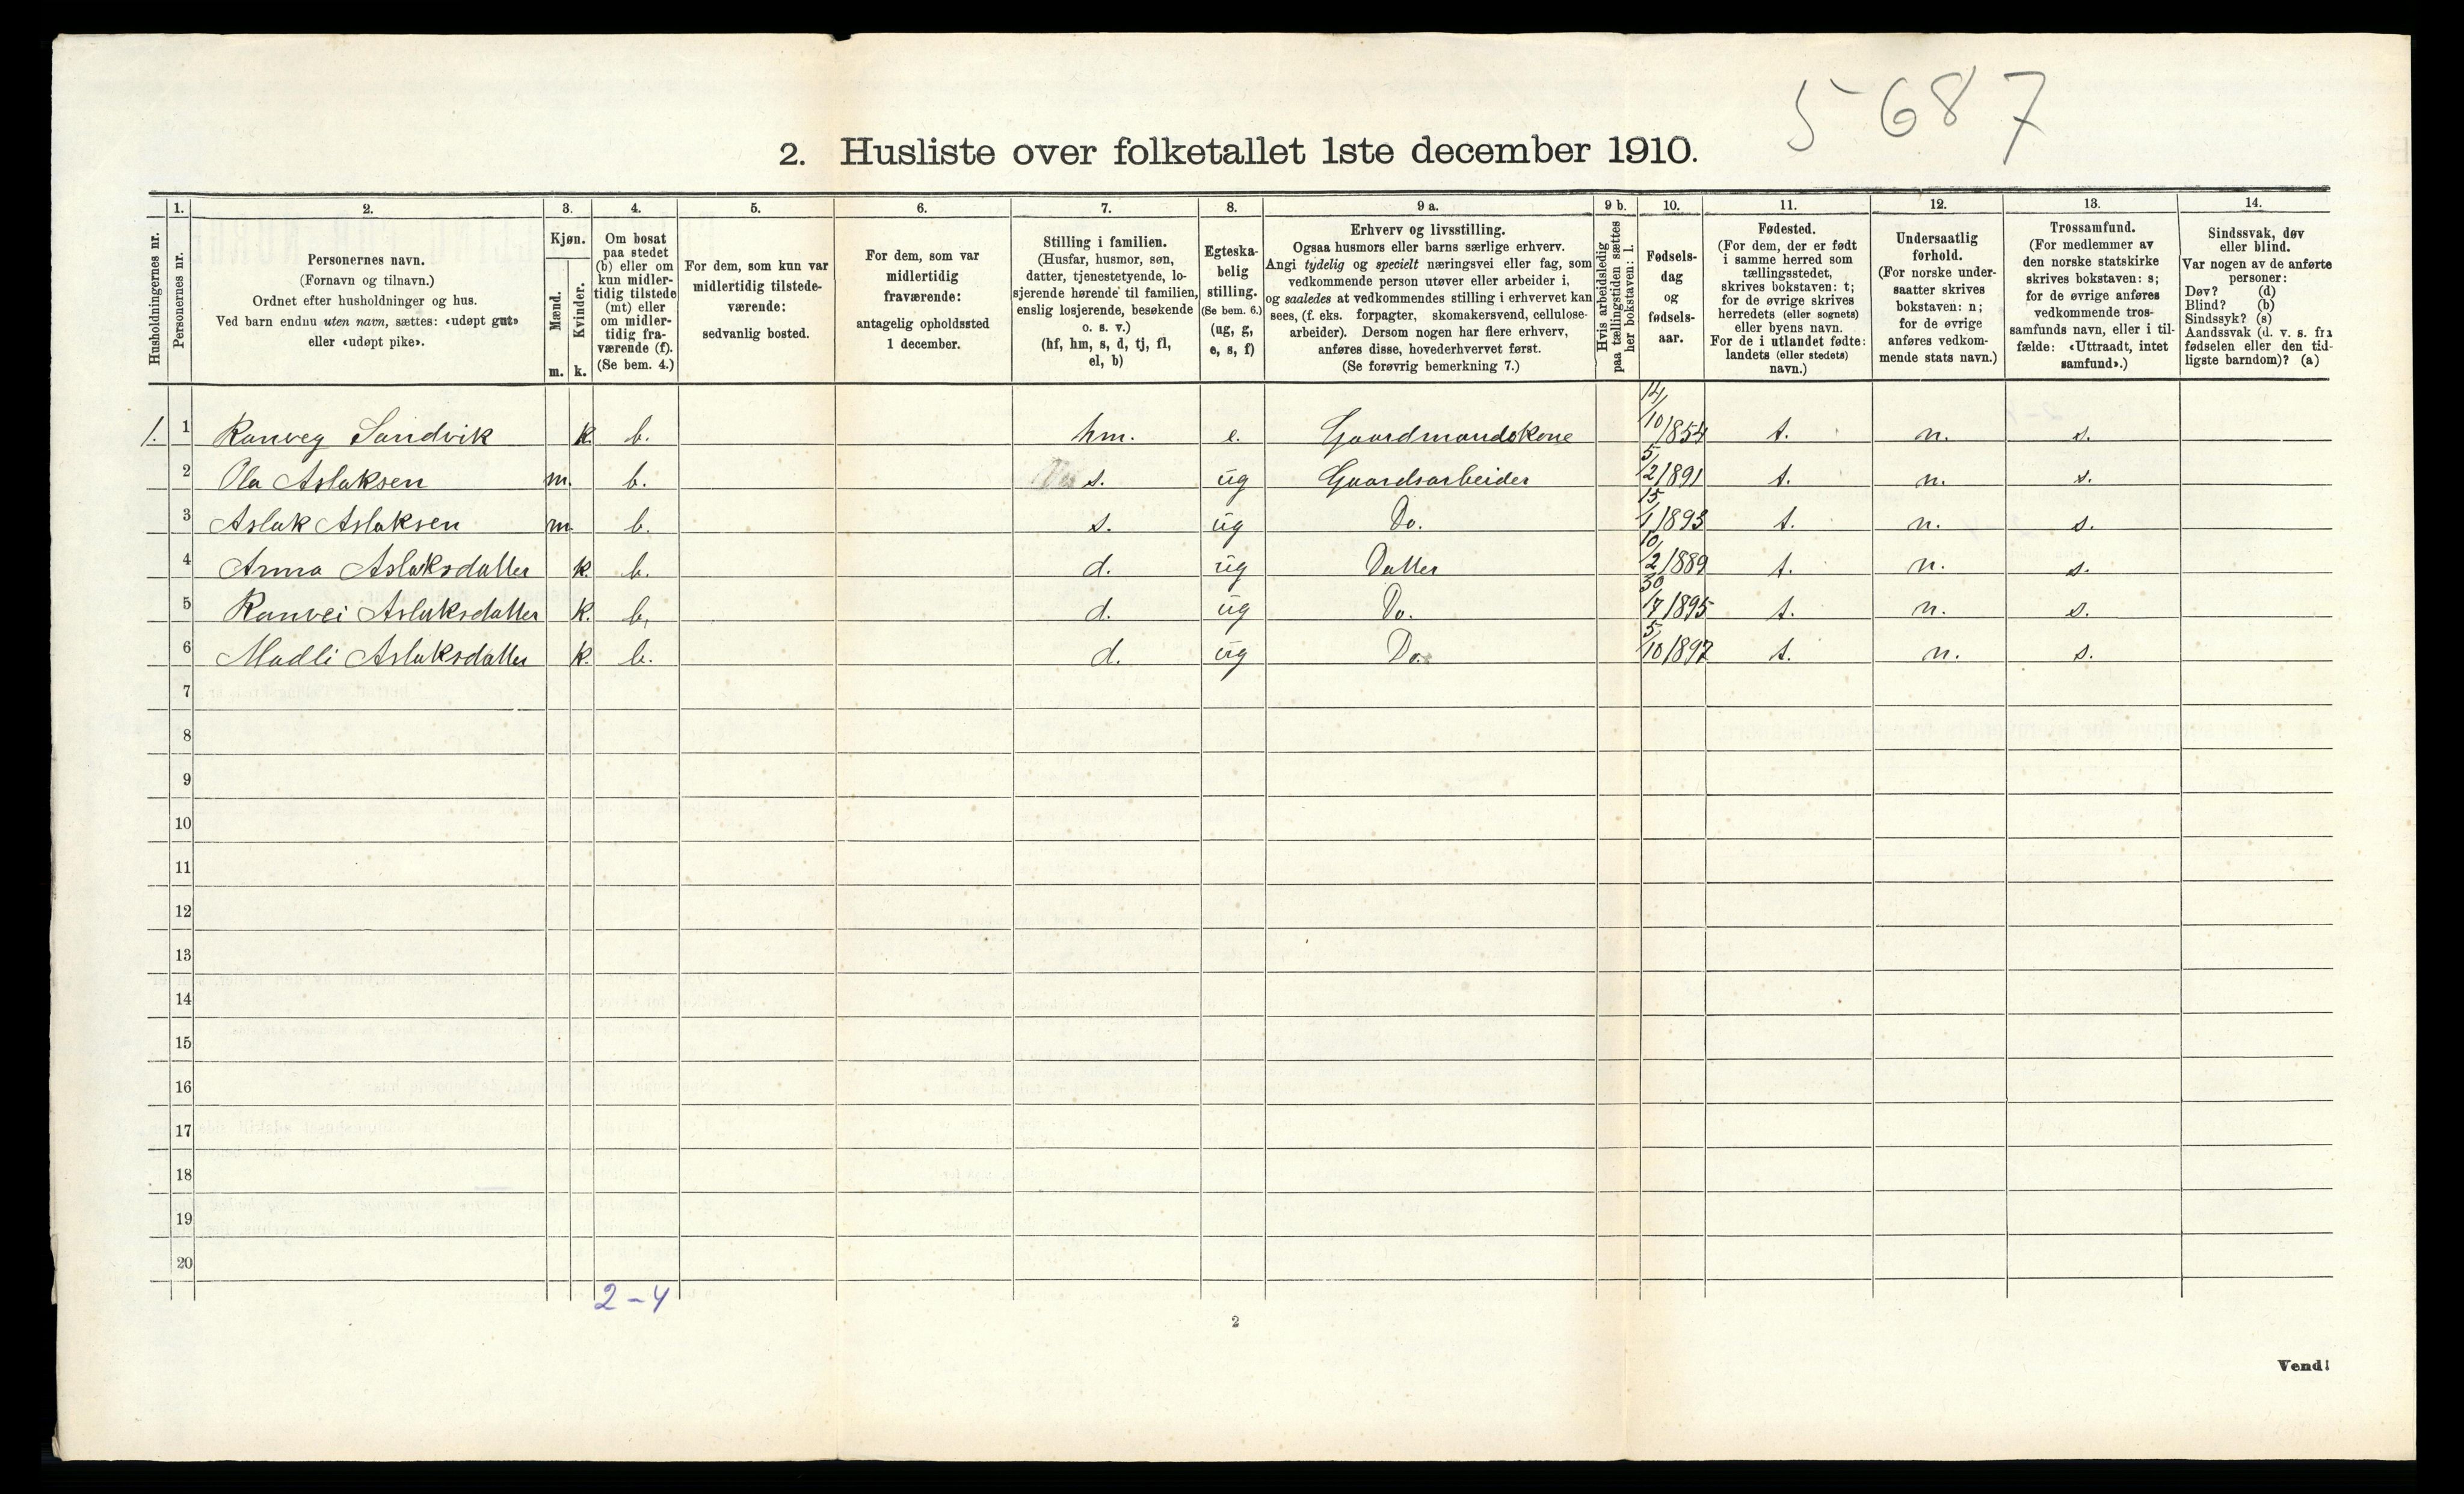 5687
2. Husliste over folketallet 1ste december 1910.
Husholdningernes nr.
1.
Personernes nr.
2.
Personernes navn.
(Fornavn og tilnavn.)
Ordnet efter husholdninger og hus.
Ved barn endnu uten navn, sættes: «udøpt gut»
eller «udøpt pike».
3.
Kjøn.
Mænd.
Kvinder.
m. k.
4.
Om bosat
paa stedet
(b) eller om
kun midler-
tidig tilstede
(mt) eller
om midler-
tidig fra-
værende (f).
(Se bem. 4.)
5.
For dem, som kun var
midlertidig tilstede-
værende:
sedvanlig bosted.
6.
For dem, som var
midlertidig
fraværende:
antagelig opholdssted
1 december.
7.
Stilling i familien.
(Husfar, husmor, søn,
datter, tjenestetyende, lo-
sjerende hørende til familien,
enslig losjerende, besøkende
o. s. v.)
(hf, hm, s, d, tj, fl,
el, b)
8.
Egteska-
belig
stilling.
(Se bem. 6.)
(ug, g,
e, s, f)
9 a.
Erhverv og livsstilling.
Ogsaa husmors eller barns særlige erhverv.
Angi tydelig og specielt næringsvei eller fag, som
vedkommende person utøver eller arbeider i,
og saaledes at vedkommendes stilling i erhvervet kan
sees, (f. eks. forpagter, skomakersvend, cellulose-
arbeider). Dersom nogen har flere erhverv,
anføres disse, hovederhvervet først.
(Se forøvrig bemerkning 7.)
9 b.
Hvis arbeidsledig
paa tællingstiden sættes
her bokstaven: l.
10.
Fødsels-
dag
og
fødsels-
aar.
11.
Fødested.
(For dem, der er født
i samme herred som
tællingsstedet,
skrives bokstaven: t;
for de øvrige skrives
herredets (eller sognets)
eller byens navn.
For de i utlandet fødte:
landets (eller stedets)
navn.)
12.
Undersaatlig
forhold.
(For norske under-
saatter skrives
bokstaven: n;
for de øvrige
anføres vedkom-
mende stats navn.)
13.
Trossamfund.
(For medlemmer av
den norske statskirke
skrives bokstaven: s;
for de øvrige anføres
vedkommende tros-
samfunds navn, eller i til-
fælde: «Uttraadt, intet
samfund».)
14.
Sindssvak, døv
eller blind.
Var nogen av de anførte
personer:
Døv? (d)
Blind? (b)
Sindssyk? (s)
Aandssvak (d. v. s. fra
fødselen eller den tid-
ligste barndom)? (a)
1. 1 Ranveg Sandvik k. b. hm. e. Gaardmandskone 14/10/854 t. n. s.
2 Ola Aslaksen m. b. s. ug Gaardsarbeider 5/2/1891 t. n. s.
3 Aslak Aslaksen m b. s. ug Do. 15/1/1893 t. n. s.
4 Anna Aslaksdatter k. b. d. ug Datter 10/2/1889 t. n. s.
5 Ranvei Aslaksdatter k. b. d. ug Do. 30/7/1895 t. n. s.
6 Madli Aslaksdatter k. b. d. ug Do. 5/10/1897 t. n. s.
7
8
9
10
11
12
13
14
15
16
17
18
19
20
2-4
2
Vend!